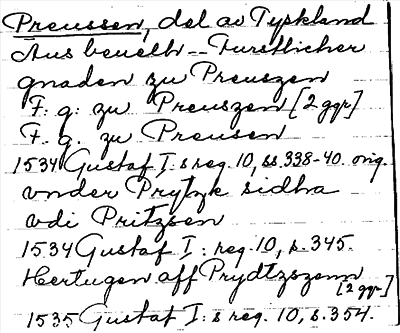 Preussen, del av Tyskland
Aus beuelh -- Furstlicher
gnaden zu Preuszen
F. g: zu Preuszen [2 ggr]
F. g. zu Preusen
1534 Gustaf I:s reg. 10, ss. 338-40. orig.
vnder Prytzk sidha
vdi Pritzsen
1534 Gustaf I: reg. 10, s. 345.
Hertugen aff Prydtzszenn
[2 ggr]
1535 Gustaf I: s reg. 10, s. 354.